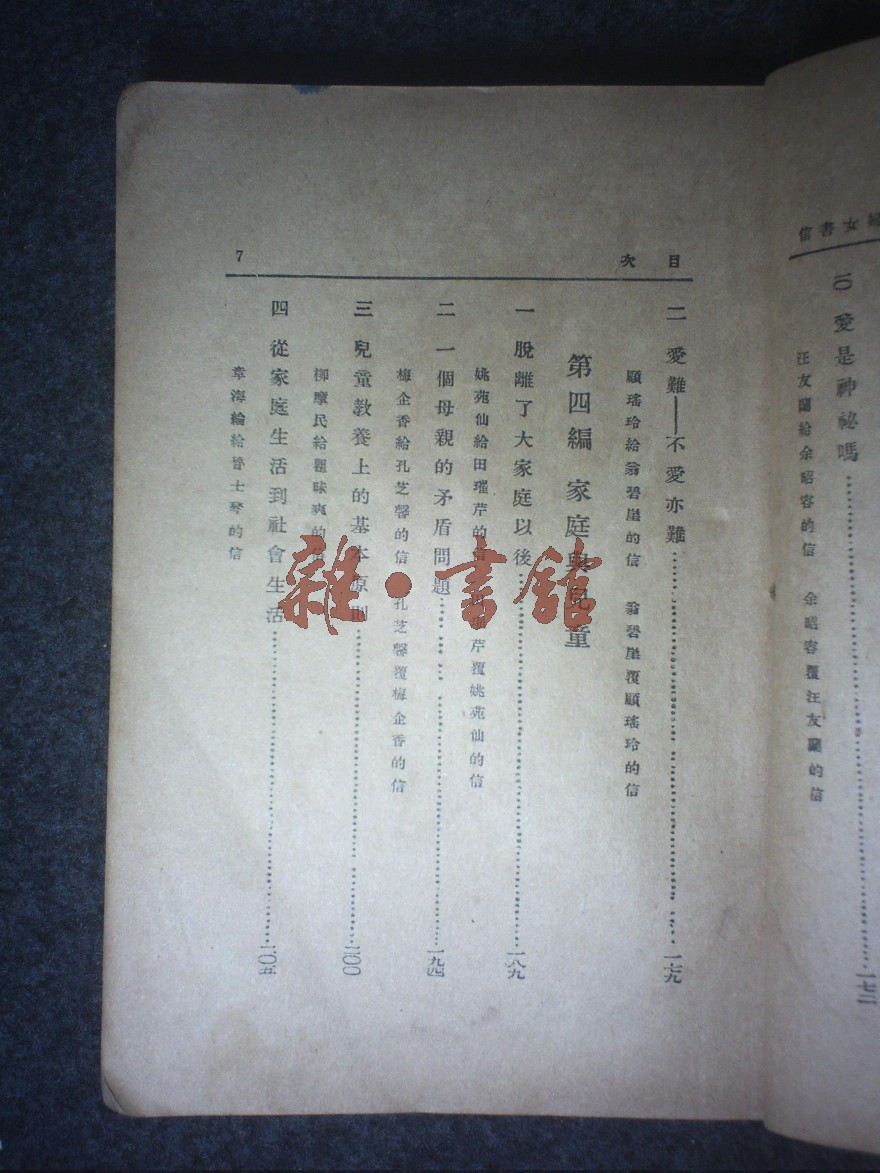 婦女書信
一〇 愛是神祕嗎……一七三
汪友蘭給余昭容的信 余昭容覆汪友蘭的信
目次 7
一一 愛難——不愛亦難……一七九
顧瑤玲給翁碧崖的信 翁碧崖覆顧瑤玲的信
第四編 家庭與兒童
一 脫離了大家庭以後……一八九
姚苑仙給田芹的信 芹覆姚苑仙的信
二 一個母親的矛盾問題……一九四
梅企香給孔芝馨的信 孔芝馨覆梅企香的信
三 兒童教養上的基本原則……二〇〇
柳摩民給味爽的信
四 從家庭生活到社會生活……二〇五
章海綸給士琴的信
雜·書館